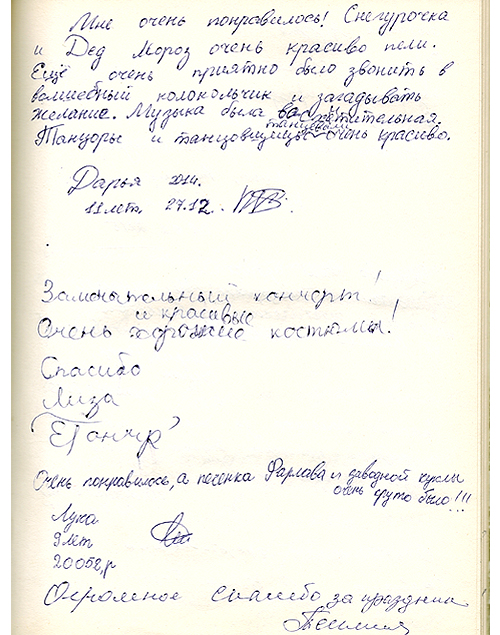 Мне очень понравилось! Снегурочка
и Дед Мороз очень красиво пели.
Ещё очень приятно было звонить в
волшебный колокольчик и загадывать
желание. Музыка была восхитительная.
танцевали
Танцоры и танцовщицы очень красиво.
Дарья
11 лет. 27.12.
Замечательный концерт!
и красивые
Очень хорошие костюмы!
Спасибо
Лиза
Очень понравилось, а песенка Фарлафа и заводной куклы
очень круто было!!!
Лука
9 лет
2005г,р
Огромное спасибо за праздник